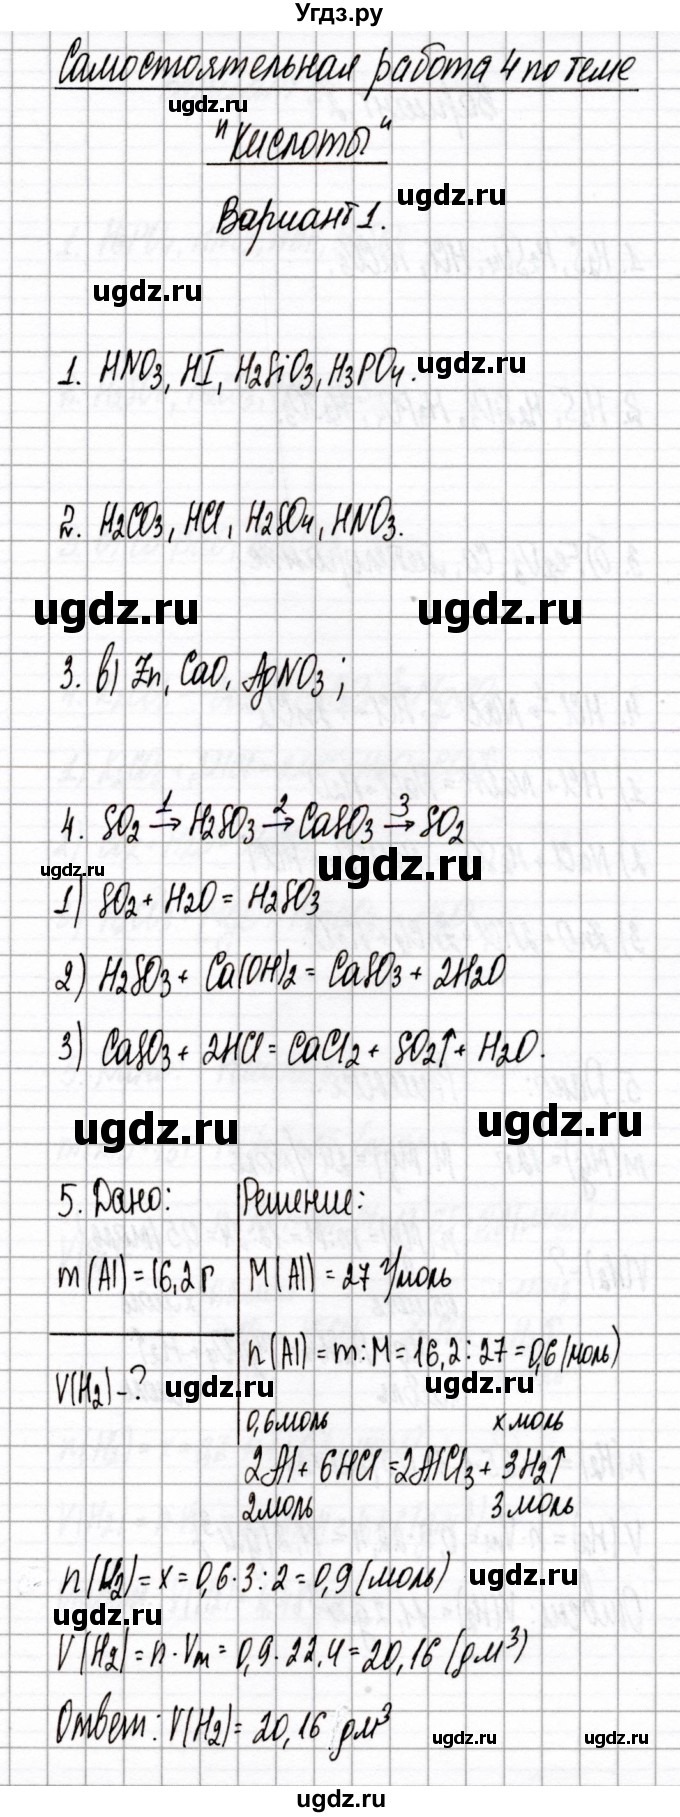 Угдз.ру
Самостоятельная работа 4 по теме
ugdz.ru
"Кислоты"
ugdz.ru
Вариант 1.
ugdz.ru
1. HNO3, HI, H2SiO3, H3PO4. ugdz.ru
2. H2CO3, HCl, H2SO4, HNO3.
ugdz.ru ugdz.ru
3. в) Zn, CaO, AgNO3;
4. SO2 →1 H2SO3 →2 CaSO3 →3 SO2
ugdz.ru ugdz.ru
1) SO2 + H2O = H2SO3
2) H2SO3 + Ca(OH)2 = CaSO3 + 2H2O
3) CaSO3 + 2HCl = CaCl2 + SO2↑ + H2O.
ugdz.ru ugdz.ru
5. Дано: Решение:
m(Al) = 16,2 г M(Al) = 27 г/моль
n(Al) = m : M = 16,2 : 27 = 0,6 (моль)
V(H2) - ? ugdz.ru ugdz.ru
0,6 моль x моль
2Al + 6HCl = 2AlCl3 + 3H2↑
2 моль 3 моль
n(H2) = x = 0,6 · 3 : 2 = 0,9 (моль) ugdz.ru
ugdz.ru
V(H2) = n · Vm = 0,9 · 22,4 = 20,16 (дм³)
Ответ: V(H2) = 20,16 дм³
ugdz.ru ugdz.ru
ugdz.ru